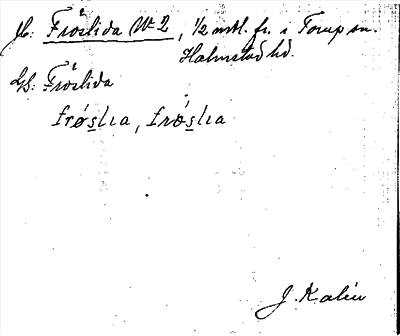 Jb: Fröslida Nr 2, 1/2 mtl. fr. i Torup sn.
Halmstad hd.
Gs: Fröslida
frøslıa, frøslıa
J. Kalén